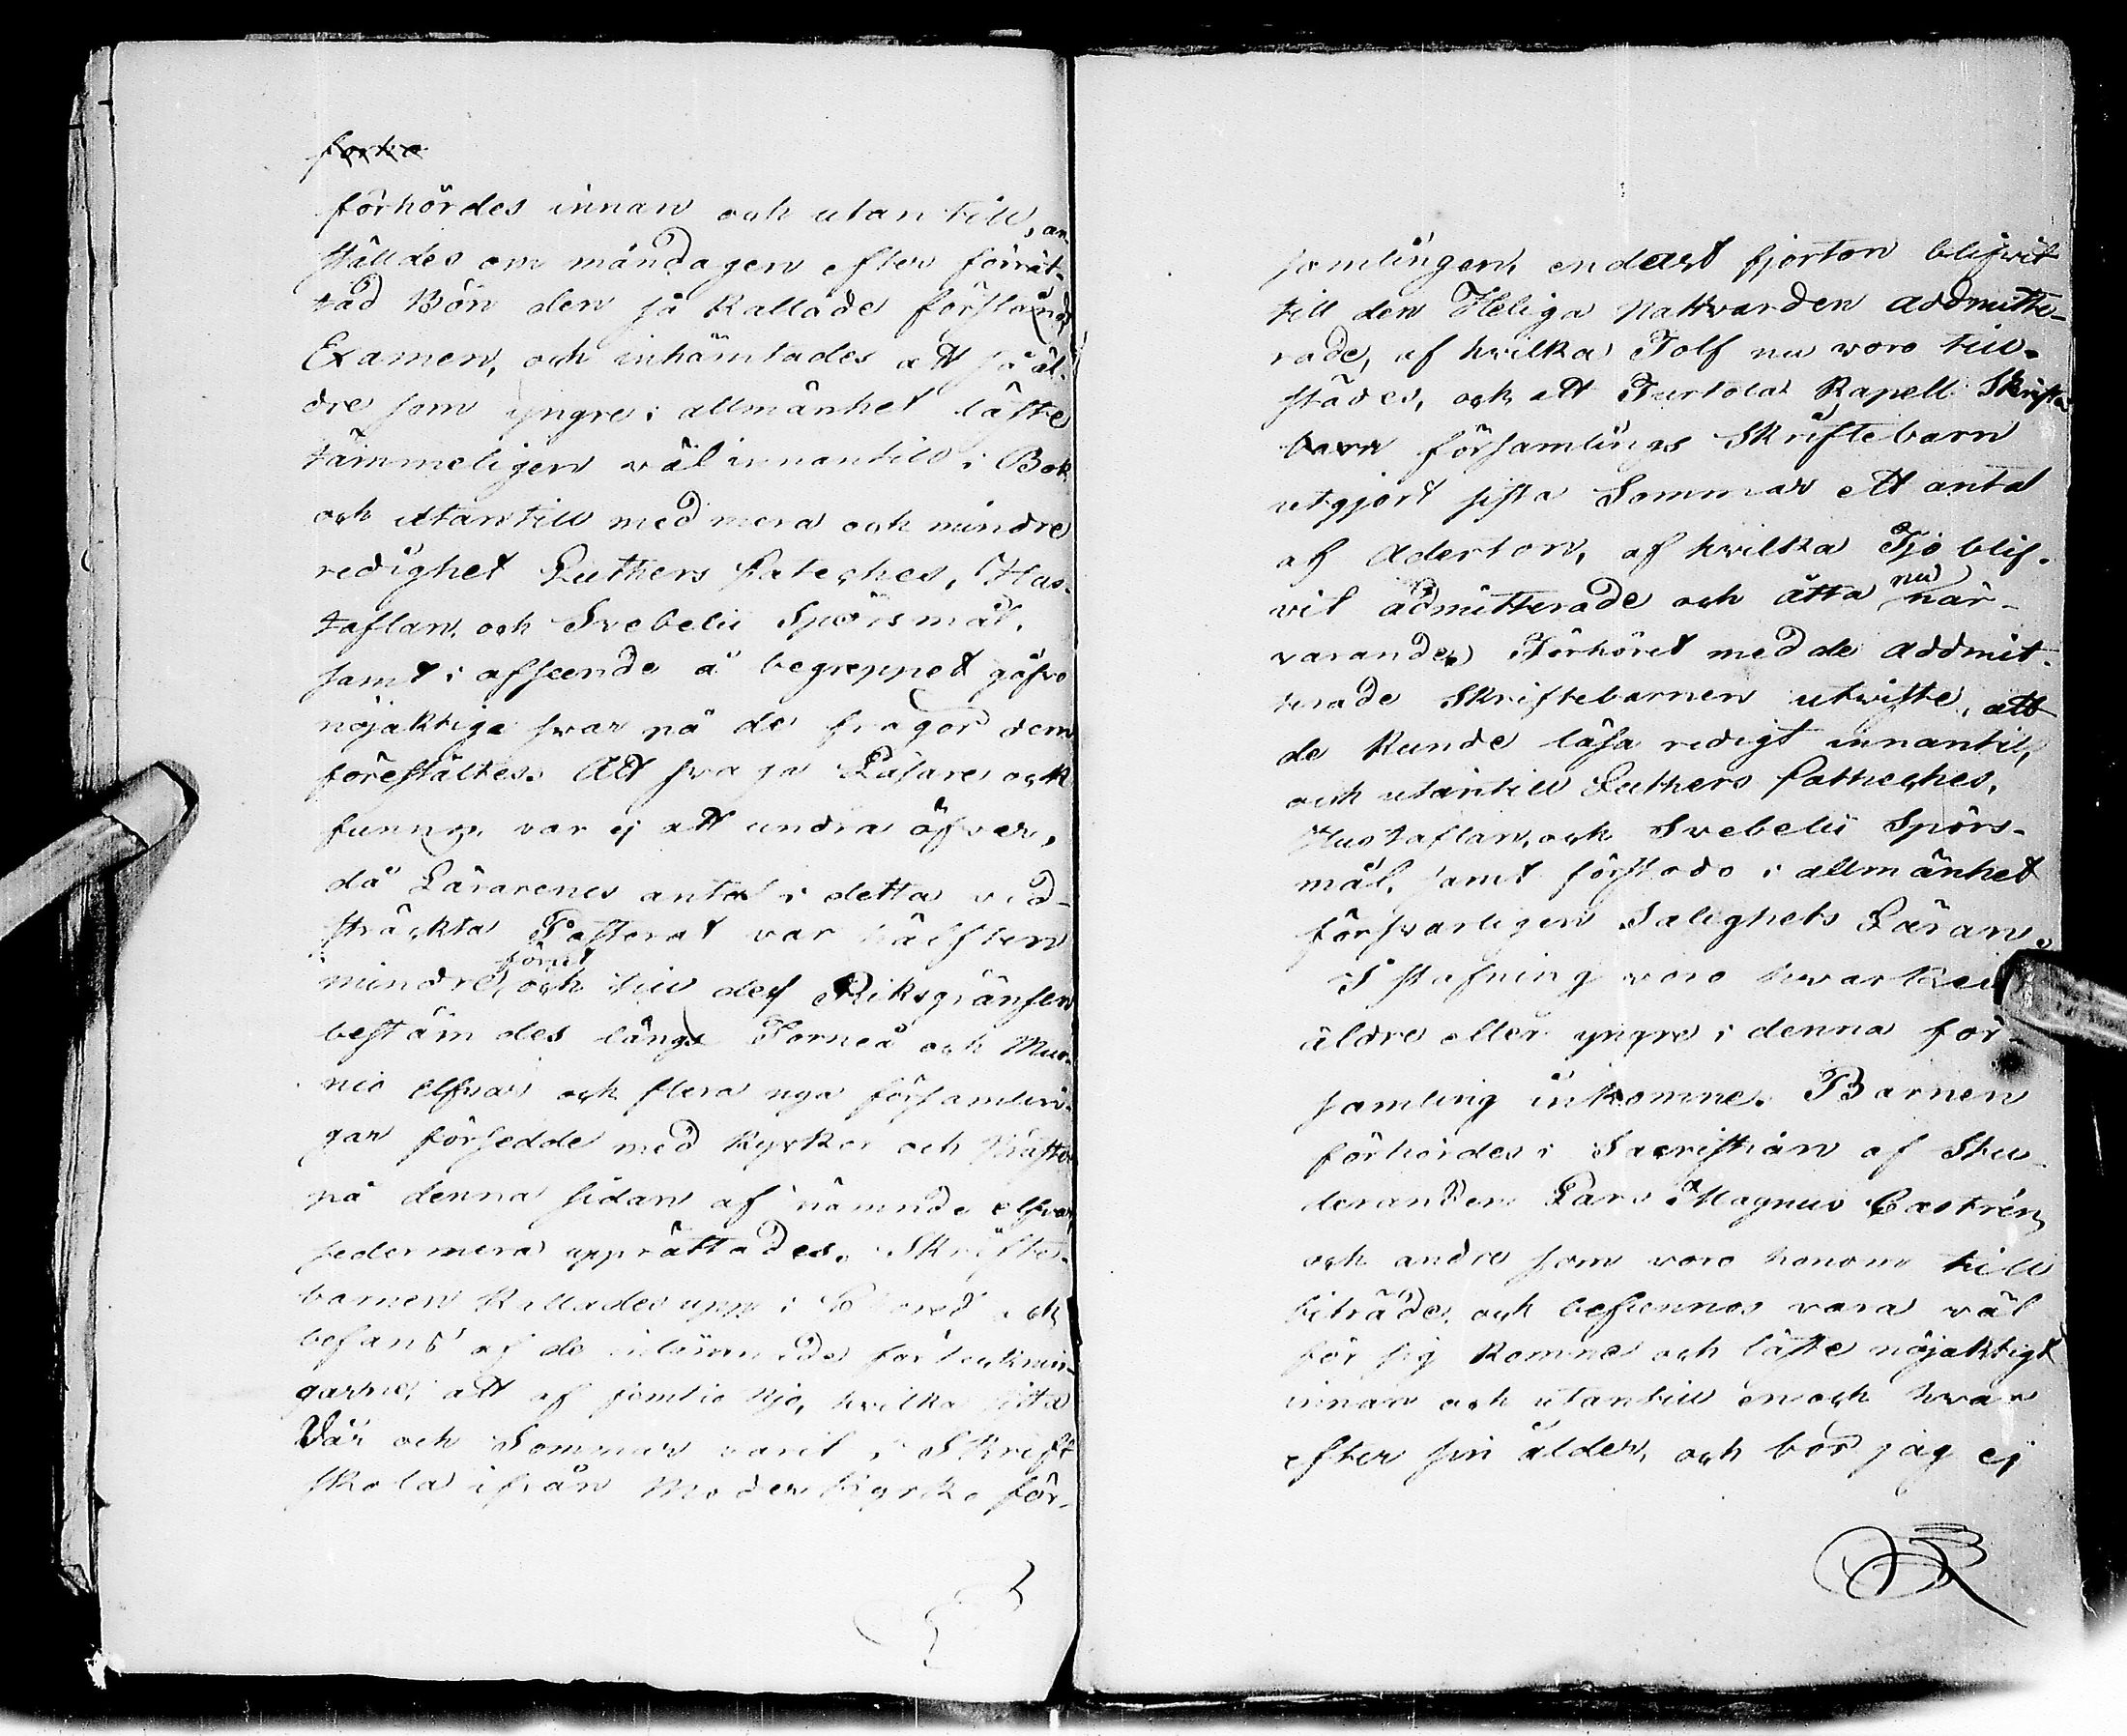 förhördes innan och utan till, an-
ställdes om måndagen efter förrät-
tad Bön den så kallade förstånds
Examen, och inhämtades att så äl-
dre som yngre i allmänhet läste
tämmeligen väl innantill i Bok
och utantill med mera och mindre
redighet Luthers Cateches, Hus-
taflan, och Svebelii Spörsmål,
samt i afseende å begreppet gåfvo
nöjaktige svar på de frågor dem
föreställtes. Att svaga Läsare ock
funnos var ej att undra öfver,
då Lärarenes antal i detta vid-
sträckta Pastorat var hälften
mindre, förut och till dess Riksgränsen
bestämdes längs Torneå och Muo-
nio elfvar och flera nya församlin-
gar försedde med kyrkor och Präster
på denna sidan af nämnde elfvar
sedermera upprättades. Skrifte-
barnen kallades upp i Choret och
befans af de inlämnade förteknin-
garne, att af femtio sju, hvilka sista
Vår och Sommar varit i Skrift
skola ifrån Moderkyrko för-
samlingen, endast fjorton blifvit
till den Heliga Nattvarden admitte-
rade, af hvilka Tolf nu voro till-
städes, och att Turtola Kapell Skrifte
barn församlings Skriftebarn
utgjort sista Sommar ett antal
af Aderton, af hvilka Tjo blif-
vit admitterade och åtta nu när-
varande. Förhöret med de admit-
terade Skriftebarnen utviste, att
de kunde läsa redigt innantill,
och utantill Luthers Catheches,
Hustaflan, och Svebelii Spörs-
mål, samt förstodo i allmänhet
försvarligen Salighets Läran.
I stafning voro hvarken
äldre eller yngre i denna för-
samling inkomne. Barnen
förhördes i Sacristian af Stu-
deranden Lars Magnus Castrén
och andre som voro honom till
biträde, och befunnos vara väl
för sig komne och läste nöjaktigt
innan och utantill en och hvar
efter sin ålder, och bör jag ej